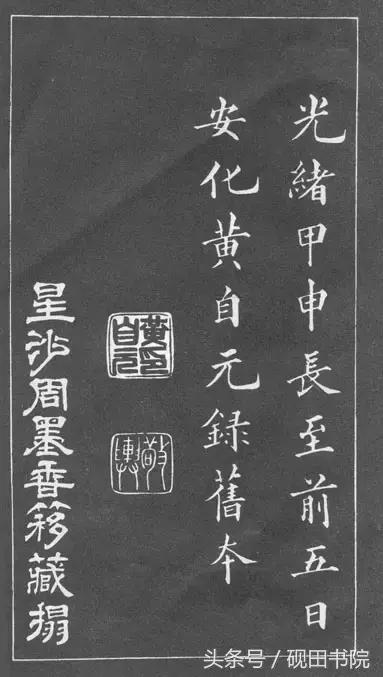 光緒甲申長至前五日
安化黄自元録舊本
黄自元印
敬輿
星沙周墨香簃藏搨
头条号/砚田书院